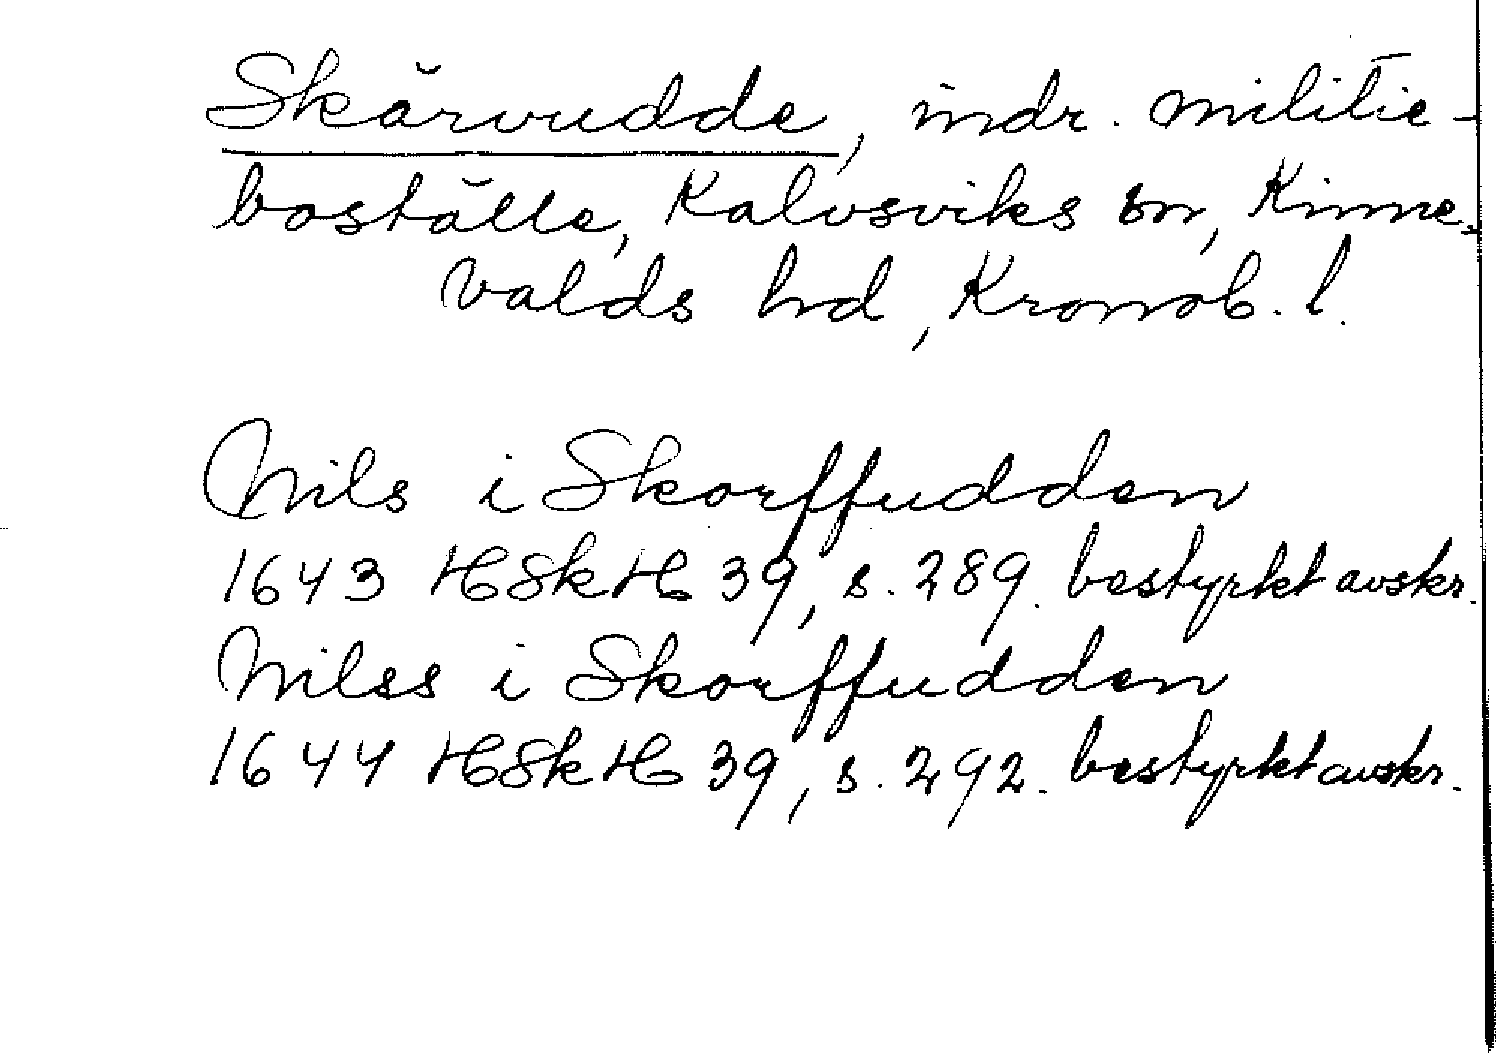 Skärvudde, indr. militie-
boställe, Kalvsviks sn, Kinne-
valds hd, Kronob. l.
Nils i Skorffudden
1643 HSkH 39, s. 289. bestyrkt avskr.
Nilss i Skorffudden
1644 HSkH 39, s. 292. bestyrkt avskr.